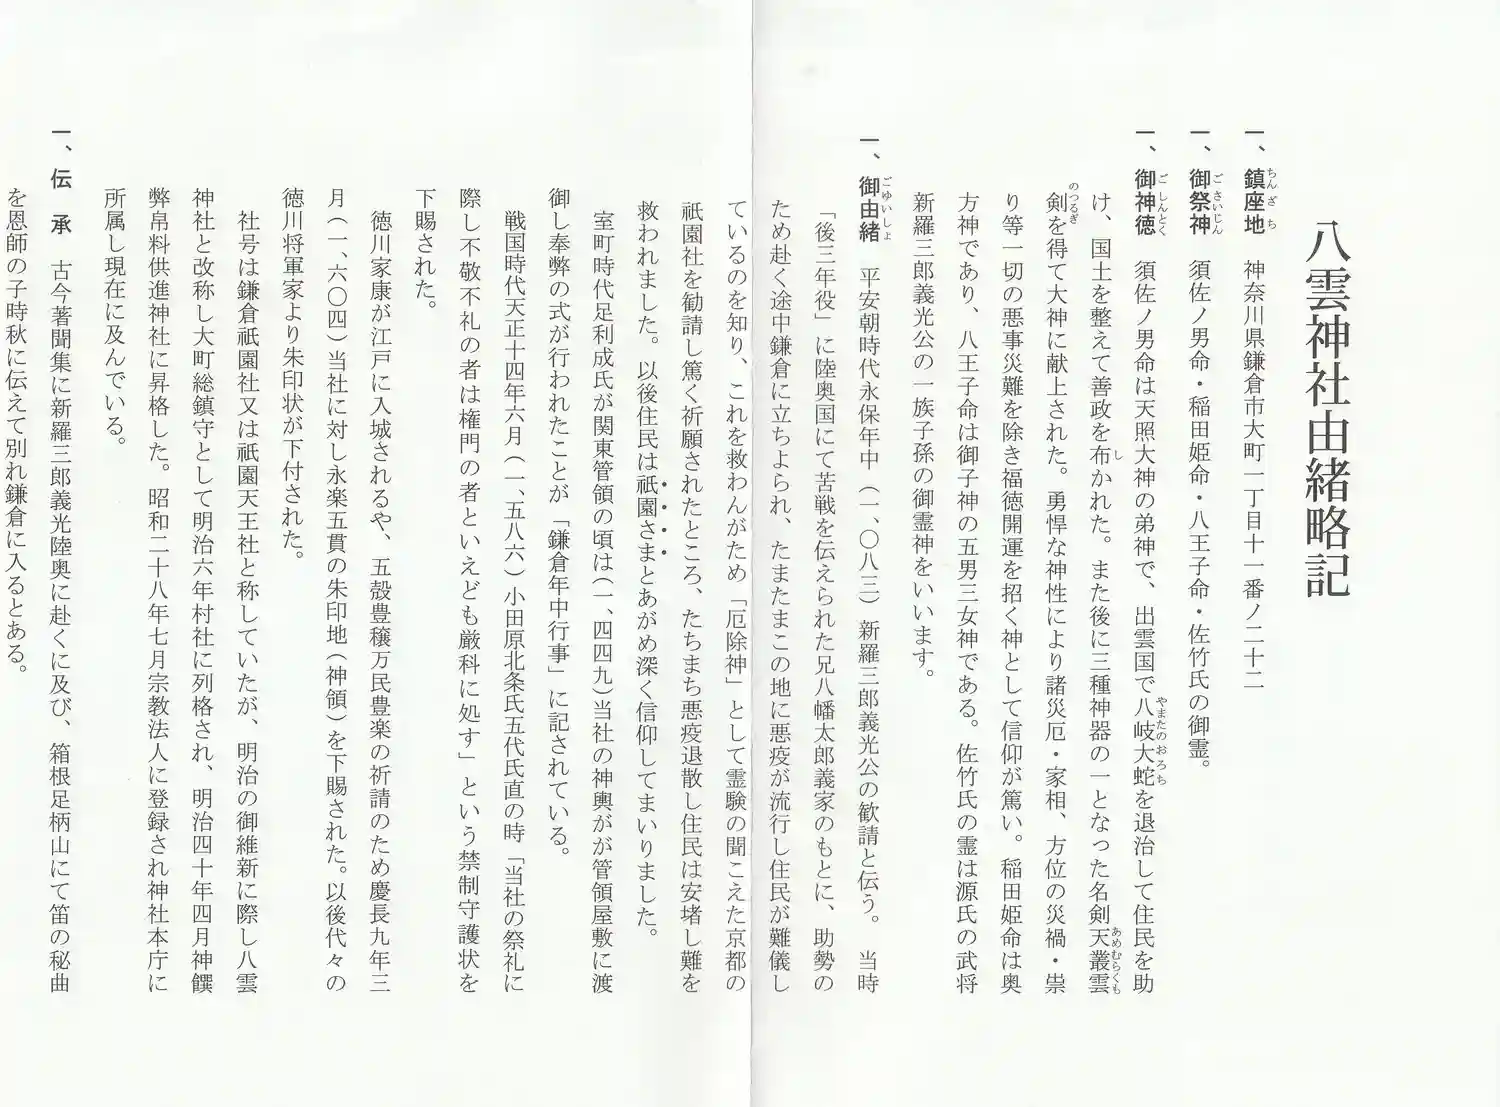 八雲神社由緒略記
一、鎮座地　神奈川県鎌倉市大町一丁目十一番ノ二十二
一、御祭神　須佐ノ男命・稲田姫命・八王子命・佐竹氏の御霊。
一、御神徳　須佐ノ男命は天照大神の弟神で、出雲国で八岐大蛇を退治して住民を助
け、国土を整えて善政を布かれた。また後に三種神器の一となった名剣天叢雲
剣を得て大神に献上された。勇悍な神性により諸災厄・家相、方位の災禍・祟
り等一切の悪事災難を除き福徳開運を招く神として信仰が篤い。稲田姫命は奥
方神であり、八王子命は御子神の五男三女神である。佐竹氏の霊は源氏の武将
新羅三郎義光公の一族子孫の御霊神をいいます。
一、御由緒　平安朝時代永保年中（一、〇八三）新羅三郎義光公の勧請と伝う。　当時
「後三年役」に陸奥国にて苦戦を伝えられた兄八幡太郎義家のもとに、助勢の
ため赴く途中鎌倉に立ちよられ、たまたまこの地に悪疫が流行し住民が難儀し
ているのを知り、これを救わんがため「厄除神」として霊験の聞こえた京都の
祇園社を勧請し篤く祈願されたところ、たちまち悪疫退散し住民は安堵し難を
救われました。以後住民は祇園さまとあがめ深く信仰してまいりました。
室町時代足利成氏が関東管領の頃は（一、四四九）当社の神輿がが管領屋敷に渡
御し奉弊の式が行われたことが「鎌倉年中行事」に記されている。
戦国時代天正十四年六月（一、五八六）小田原北条氏五代氏直の時「当社の祭礼に
際し不敬不礼の者は権門の者といえども厳科に処す」という禁制守護状を
下賜された。
徳川家康が江戸に入城されるや、五穀豊穣万民豊楽の祈請のため慶長九年三
月（一、六〇四）当社に対し永楽五貫の朱印地（神領）を下賜された。以後代々の
徳川将軍家より朱印状が下付された。
社号は鎌倉祇園社又は祇園天王社と称していたが、明治の御維新に際し八雲
神社と改称し大町総鎮守として明治六年村社に列格され、明治四十年四月神饌
弊帛料供進神社に昇格した。昭和二十八年七月宗教法人に登録され神社本庁に
所属し現在に及んでいる。
一、伝　承　古今著聞集に新羅三郎義光陸奥に赴くに及び、箱根足柄山にて笛の秘曲
を恩師の子時秋に伝えて別れ鎌倉に入るとある。